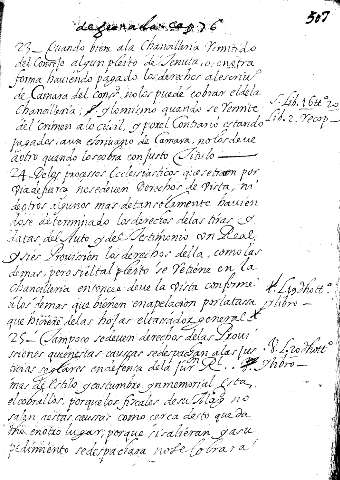 de Granada. Cap. 76
507
23 - Quando bien a la Chancilleria Remitido
del Consejo algun pleito de tenuta, o, en otra
forma haviendo pagado los derechos al escriuº
de Camara del Consº, no los puede cobrar el de la
Chancilleria; y lo mismo quando se Remite
del Crimen a lo ciuil, y por el Contrario estando
pagados, a un escriuano de Camara, no los deue
a otro quando los cobra con justo titulo
S. Lib. 16 ttº 20
Lib. 2. Recop.
24 - De los processos Ecclesiasticos que se traen por
via de fuerza no se deuen Derechos de Vista, ni
de otros algunos mas de tan solamente havien
dose determinado los derechos de las tiras y
datas, del Auto, y del testimonio con Real
y seis Provision los derechos della, como las
demas, pero si el tal pleito se Retiene en la
Chancilleria entonces deue la vista conforme
a los demas que vienen en apelacion por la tassa
que tiene de las hojas el tassador general
y libro
25 - Tampoco se deuen derechos de las Proui
siones que en estas causas se despachan a las Jus
ticias seglares en defensa de la Jur. R.
y libro
mas de estilo y costumbre ynmemorial esta
el cobrallos, porque los fiscales de su Magd no
salen a estas causas como cerca desto queda
dho en otro lugar, porque si salieran y a su
pedimiento se despachara no se cobrara